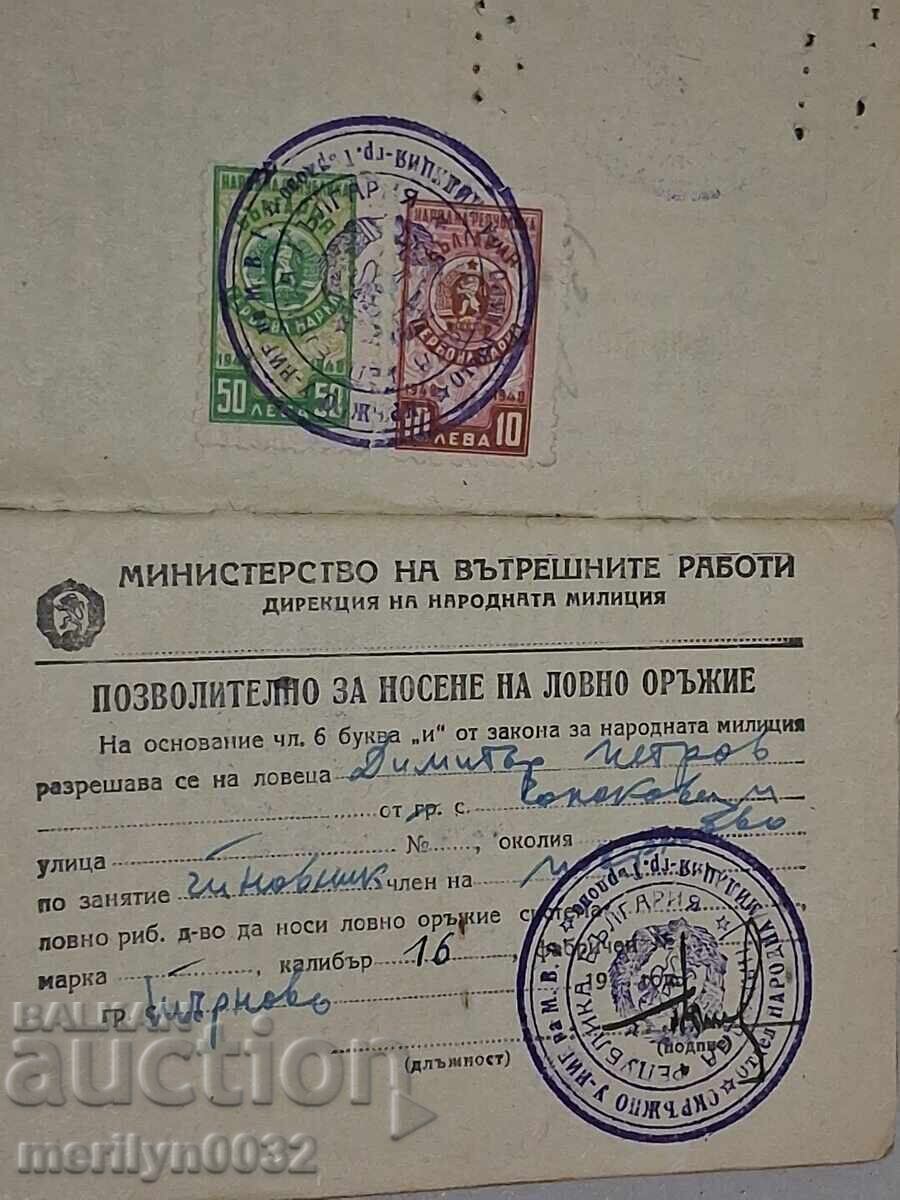 НАРОДНА РЕПУБЛИКА
БЪЛГАРИЯ
ГЕРБОВА МАРКА
1948 1948
50 50
ЛЕВА
НАРОДНА РЕПУБЛИКА
БЪЛГАРИЯ
ГЕРБОВА МАРКА
1948 1948
10 10
ЛЕВА
МИНИСТЕРСТВО НА ВЪТРЕШНИТЕ РАБОТИ
ДИРЕКЦИЯ НА НАРОДНАТА МИЛИЦИЯ
ПОЗВОЛИТЕЛНО ЗА НОСЕНЕ НА ЛОВНО ОРЪЖИЕ
На основание чл. 6 буква „и“ от закона за народната милиция
разрешава се на ловеца Димитър Петров
от гр. с.
улица № , околия
по занятие чиновник член на
ловно риб. д-во да носи ловно оръжие
марка , калибър 16 , фабричен №
гр. Търново 19 год.
(длъжност) (подпис)
НАРОДНА РЕПУБЛИКА БЪЛГАРИЯ
BALKAN
auction
merilyn0032